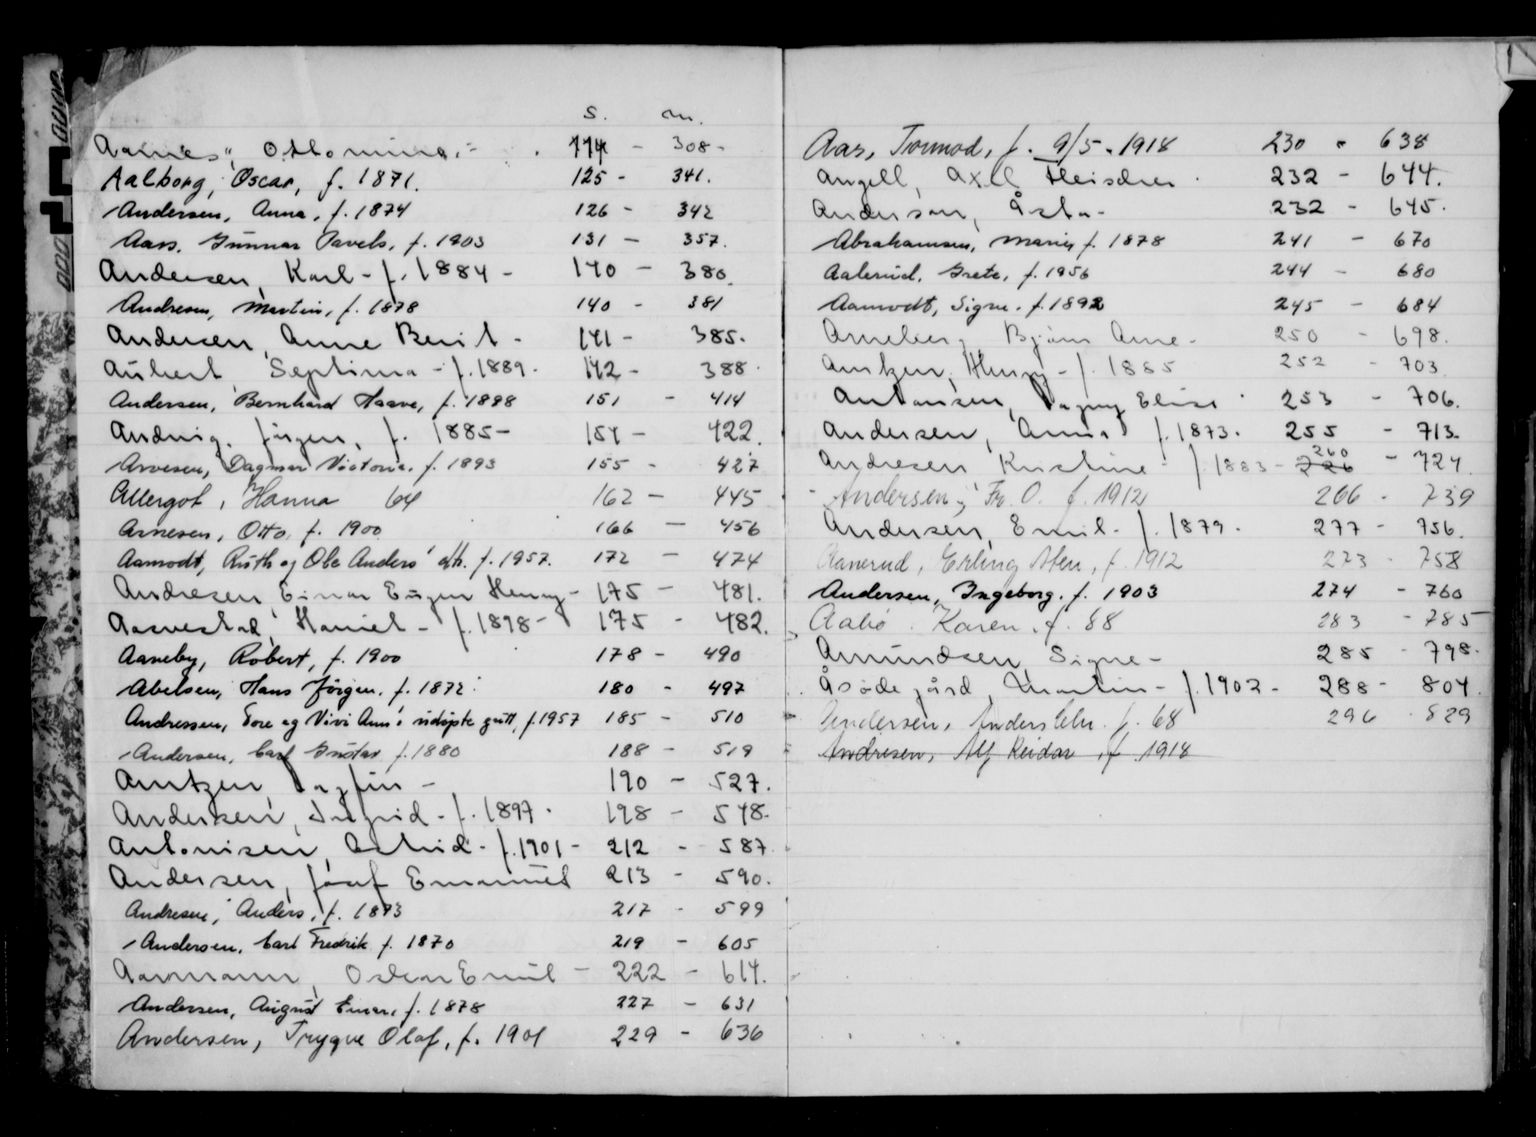 s. m.
Aames, Ottomine. - 114 - 308 -
Aalborg, Oscar, f. 1871. 125 - 341.
Andersen, Anna, f. 1874 126 - 342
Aars, Gunnar Pavels, f. 1903 131 - 357.
Andersen, Karl - f. 1884 - 140 - 380.
Andresen, Martin, f. 1878 140 - 381
Andersen, Anne Berit - 141 - 385.
Aubert Septima - f. 1889. 142 - 388
Andersen, Bernhard Haave, f. 1898 151 - 414
Andvig, Jörgen, f. 1885 - 154 - 422.
Arvesen, Dagmar Victoria, f. 1893 155 - 427
Allergot, Hanna 64 162 - 445
Arnesen, Otto, f. 1900 166 - 456
Aamodt, Ruth og Ole Anders' f. 1957. 172 - 474
Andresen, Einar Eugen Henry - 175 - 481.
Aasvestad, Daniel - f. 1898 - 175 - 482.
Aaneby, Robert, f. 1900 178 - 490
Abelsen, Hans Jörgen, f. 1872. 180 - 497
Andressen, Tore og Vivi Ann's udöpte gutt, f. 1957 185 - 510
Andersen, Carl Gustav f. 1880 188 - 519
Arntzen, Dagfin - 190 - 527.
Andersen, Ingrid - f. 1897. 198 - 548.
Antonisen, Astrid - f. 1901 - 212 - 587
Andersen, Josef Emanuel 213 - 590.
Andresen, Anders, f. 1873 217 - 599
Andersen, Carl Fredrik f. 1870 219 - 605
Aarmann, Oskar Emil - 222 - 614.
Andersen, August Einar, f. 1878 227 - 631
Andersen, Trygve Olaf, f. 1901 229 - 636
Aas, Tormod, f. 9/5. 1918 230 - 638
Angell, Axel Fleischer 232 - 644.
Anderson, Åsta - 232 - 645.
Abrahamsen, Marie, f. 1878 241 - 670
Aalerud, Grete, f. 1956 244 - 680
Aamodt, Signe, f. 1892 245 - 684
Arneberg, Bjørn Arne - 250 - 698.
Arntzen, Henry - f. 1885 252 - 703
Antonsen, Dagny Elise 253 - 706.
Andersen, Anna f. 1873. 255 - 713.
Andresen Kristine - f. 1883 - 226 260 - 724
Andersen, Fr. O. f. 1912 266 - 739
Andersen, Emil - f. 1879. 277 - 756.
Aanerud, Erling Sten, f. 1912 273 - 758
Andersen, Ingeborg. f. 1903 274 - 760
Aabö Karen, f. 88 283 - 785
Amundsen, Signe - 285 - 798.
Åsödegård, Martin - f. 1902 - 288 - 804
Andersen, Anders f. 68 296 - 829
Andresen, Alf Reidar, f. 1918